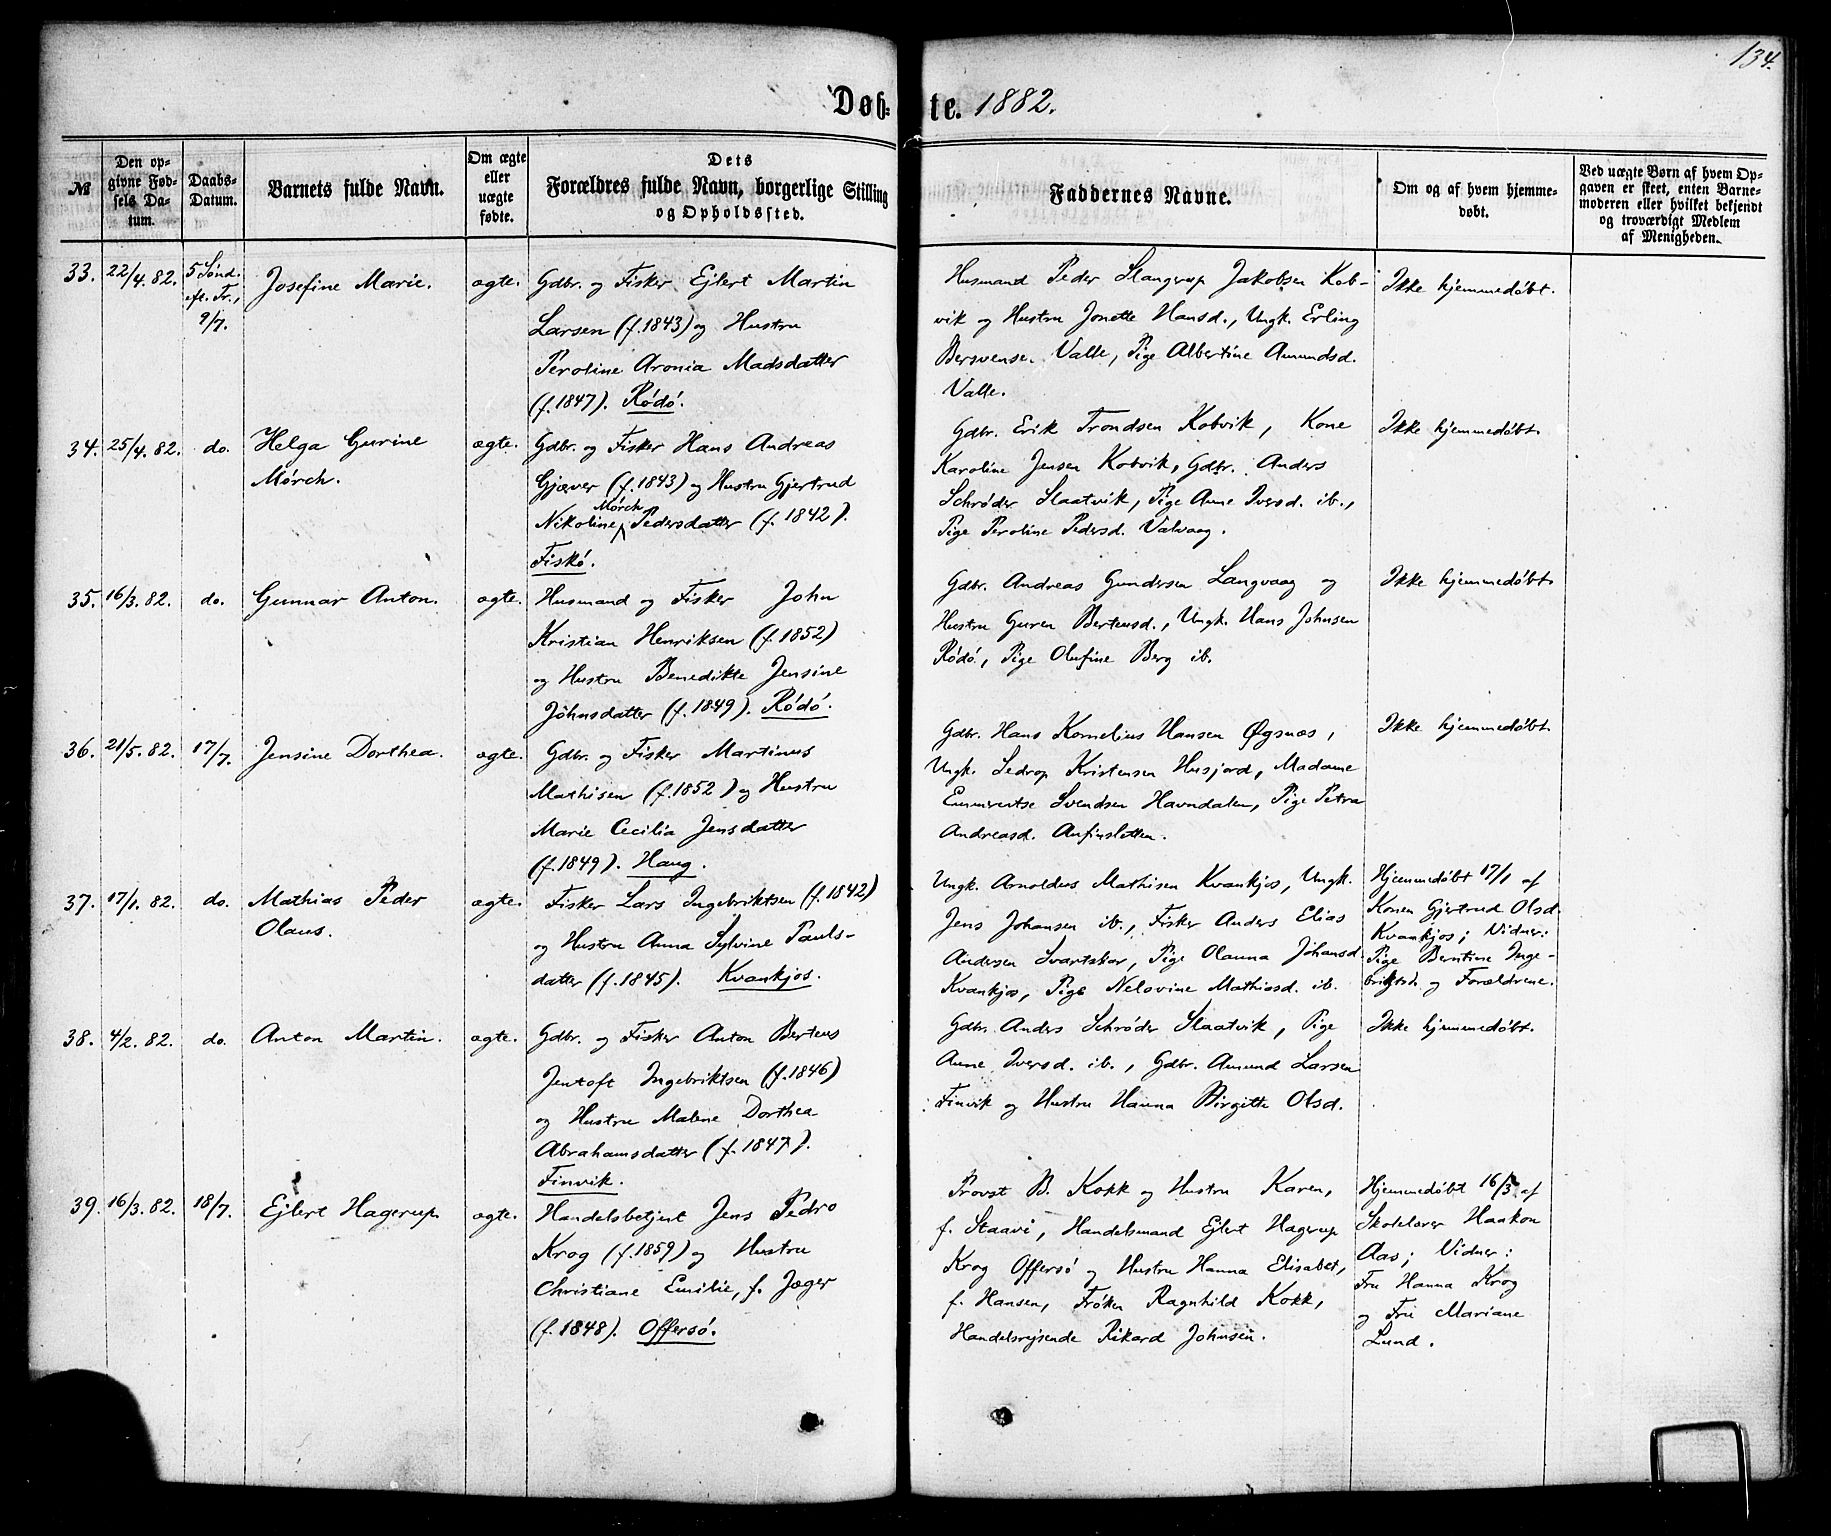 134.
Døb- te. 1882.
№
Den op-
givne Fød-
sels Da-
tum.
Daabs-
Datum.
Barnets fulde Navn.
Om ægte
eller
uægte
fødte.
Dets
Forældres fulde Navn, borgerlige Stilling
og Opholdssted.
Faddernes Navne.
Om og af hvem hjemme-
døbt.
Ved uægte Børn af hvem Op-
gaven er skeet, enten Barne-
moderen eller hvilket bekjendt
og troværdigt Medlem
af Menigheden.
33. 22/4. 82. 5 Sønd.
eft. Tr.,
9/7.
Josefine Marie.
ægte.
Gdbr. og Fisker Ejlert Martin
Larsen (f. 1843) og Hustru
Peroline Aronia Madsdatter
(f. 1847). Rødø.
Husmand Peder Slangrup Jakobsen Kob-
vik og Hustru Jonette Hansd., Ungk. Erling
Bersvense. Valle, Pige Albertine Amundsd.
Valle.
Ikke hjemmedøbt.
34. 25/4. 82. do. Helga Gurine
Mørch.
ægte.
Gdbr. og Fisker Hans Andreas
Gjæver (f. 1843) og Hustru Gjertrud
Mørch
Nikoline Pedersdatter (f. 1842).
Fiskø.
Gdbr. Erik Trondsen Kobvik, Kone
Karoline Jensen Kobvik, Gdbr. Anders
Schrøder Slaatvik, Pige Anne Iversd. ib.,
Pige Peroline Pedersd. Valvaag.
Ikke hjemmedøbt.
35. 16/3. 82. do. Gunnar Anton.
ægte.
Husmand og Fisker John
Kristian Henriksen (f. 1852)
og Hustru Benedikte Jensine
Johnsdatter (f. 1849). Rødø.
Gdbr. Andreas Gundersen Langvaag og
Hustru Guren Berteusd., Ungk. Hans Johnsen
Rødø, Pige Olufine Berg ib.
Ikke hjemmedøbt.
36. 21/5. 82. 17/7. Jensine Dorthea.
ægte.
Gdbr. og Fisker Martinus
Mathisen (f. 1852) og Hustru
Marie Cecilia Jensdatter
(f. 1849). Haug.
Gdbr. Hans Kornelius Hansen Øgsnæs,
Ungk. Sedrop Kristensen Husjord, Madame
Emmerentse Svendsen Havndalen, Pige Petra
Andreasd. Anfinsletten.
Ikke hjemmedøbt.
37. 17/1. 82. do. Mathias Peder
Olaus.
ægte.
Fisker Lars Ingebriktsen (f. 1842)
og Hustru Anna Sylvine Pauls-
datter (f. 1845). Kvankjos.
Ungk. Arnoldus Mathisen Kvankjos, Ungk.
Jens Johansen ib., Fisker Anders Elias
Andersen Svartskar, Pige Olauna Johansd.
Kvankjos, Pige Nelovine Mathiasd. ib.
Hjemmedøbt 17/1 af
Konen Gjertrud Olsd.
Kvankjos; Vidner:
Pige Berntine Inge-
briktsd. og Forældrene.
38. 4/2. 82. do. Anton Martin.
ægte.
Gdbr. og Fisker Anton Berteus
Jentoft Ingebriktsen (f. 1846)
og Hustru Malene Dorthea
Abrahamsdatter (f. 1847).
Finvik.
Gdbr. Anders Schrøder Slaatvik, Pige
Anne Iversd. ib., Gdbr. Amund Larsen
Finvik og Hustru Hanna Birgitte Olsd.
Ikke hjemmedøbt.
39. 16/3. 82. 18/7. Ejlert Hagerup.
ægte.
Handelsbetjent Jens Pedro
Krog (f. 1859) og Hustru
Christiane Emilie, f. Jæger
(f. 1848). Offersø.
Provst B. Kokk og Hustru Karen,
f. Staavi, Handelsmand Ejlert Hagerup
Krog Offersø og Hustru Hanna Elisabet,
f. Hansen, Frøken Ragnhild Kokk,
Handelsrejsende Rikard Johnsen.
Hjemmedøbt 16/3 af
Skolelærer Haakon
Aas; Vidner:
Fru Hanna Krog
og Fru Mariane
Lund.